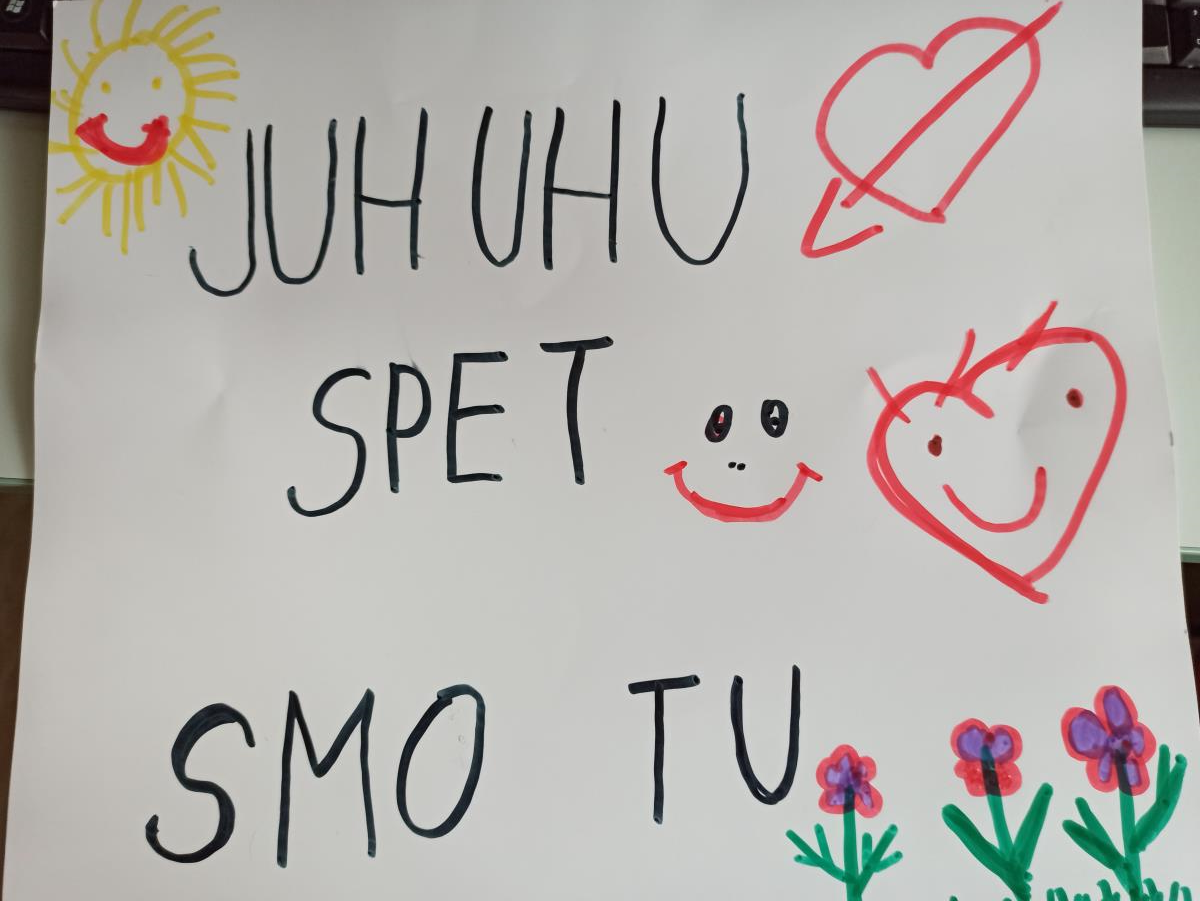 JUHUHU
SPET
SMO TU